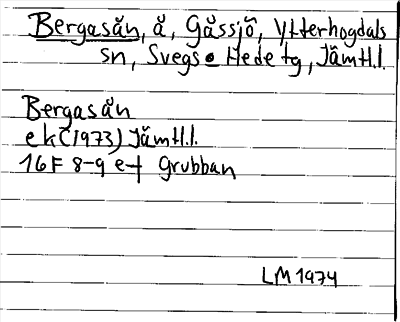 Bergasån, å, Gåssjö, Ytterhogdals
sn, Svegs o Hede tg, Jämtl.l.
Bergasån
ek (1973) Jämtl.l.
16F 8-9 e-f Grubban
LM 1974